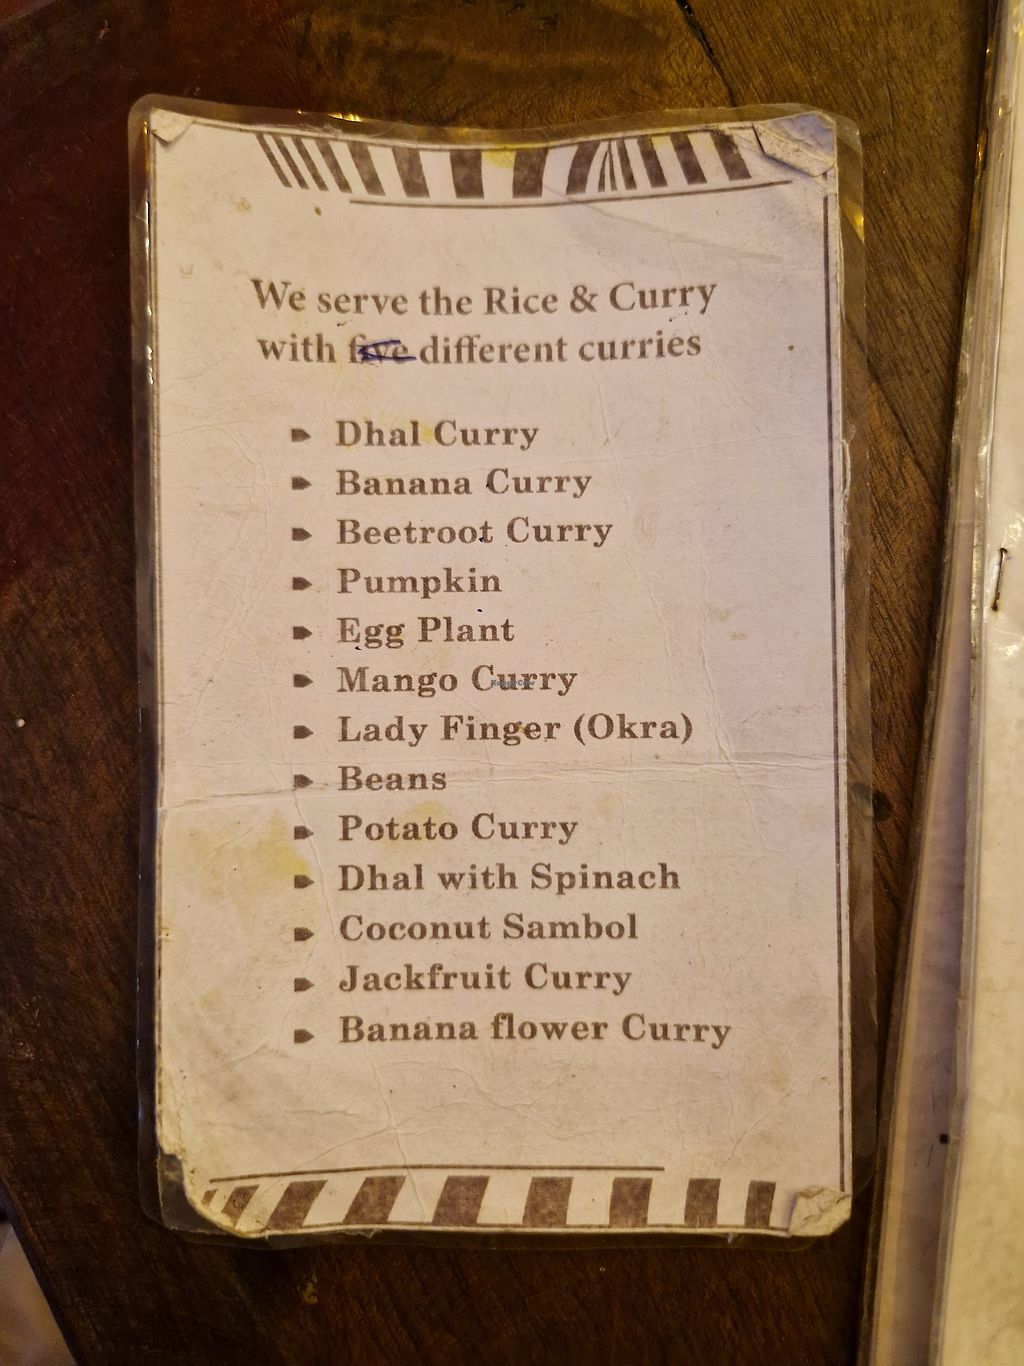 We serve the Rice & Curry
with five different curries
Dhal Curry
Banana Curry
Beetroot Curry
Pumpkin
Egg Plant
Mango Curry
Lady Finger (Okra)
Beans
Potato Curry
Dhal with Spinach
Coconut Sambol
Jackfruit Curry
Banana flower Curry